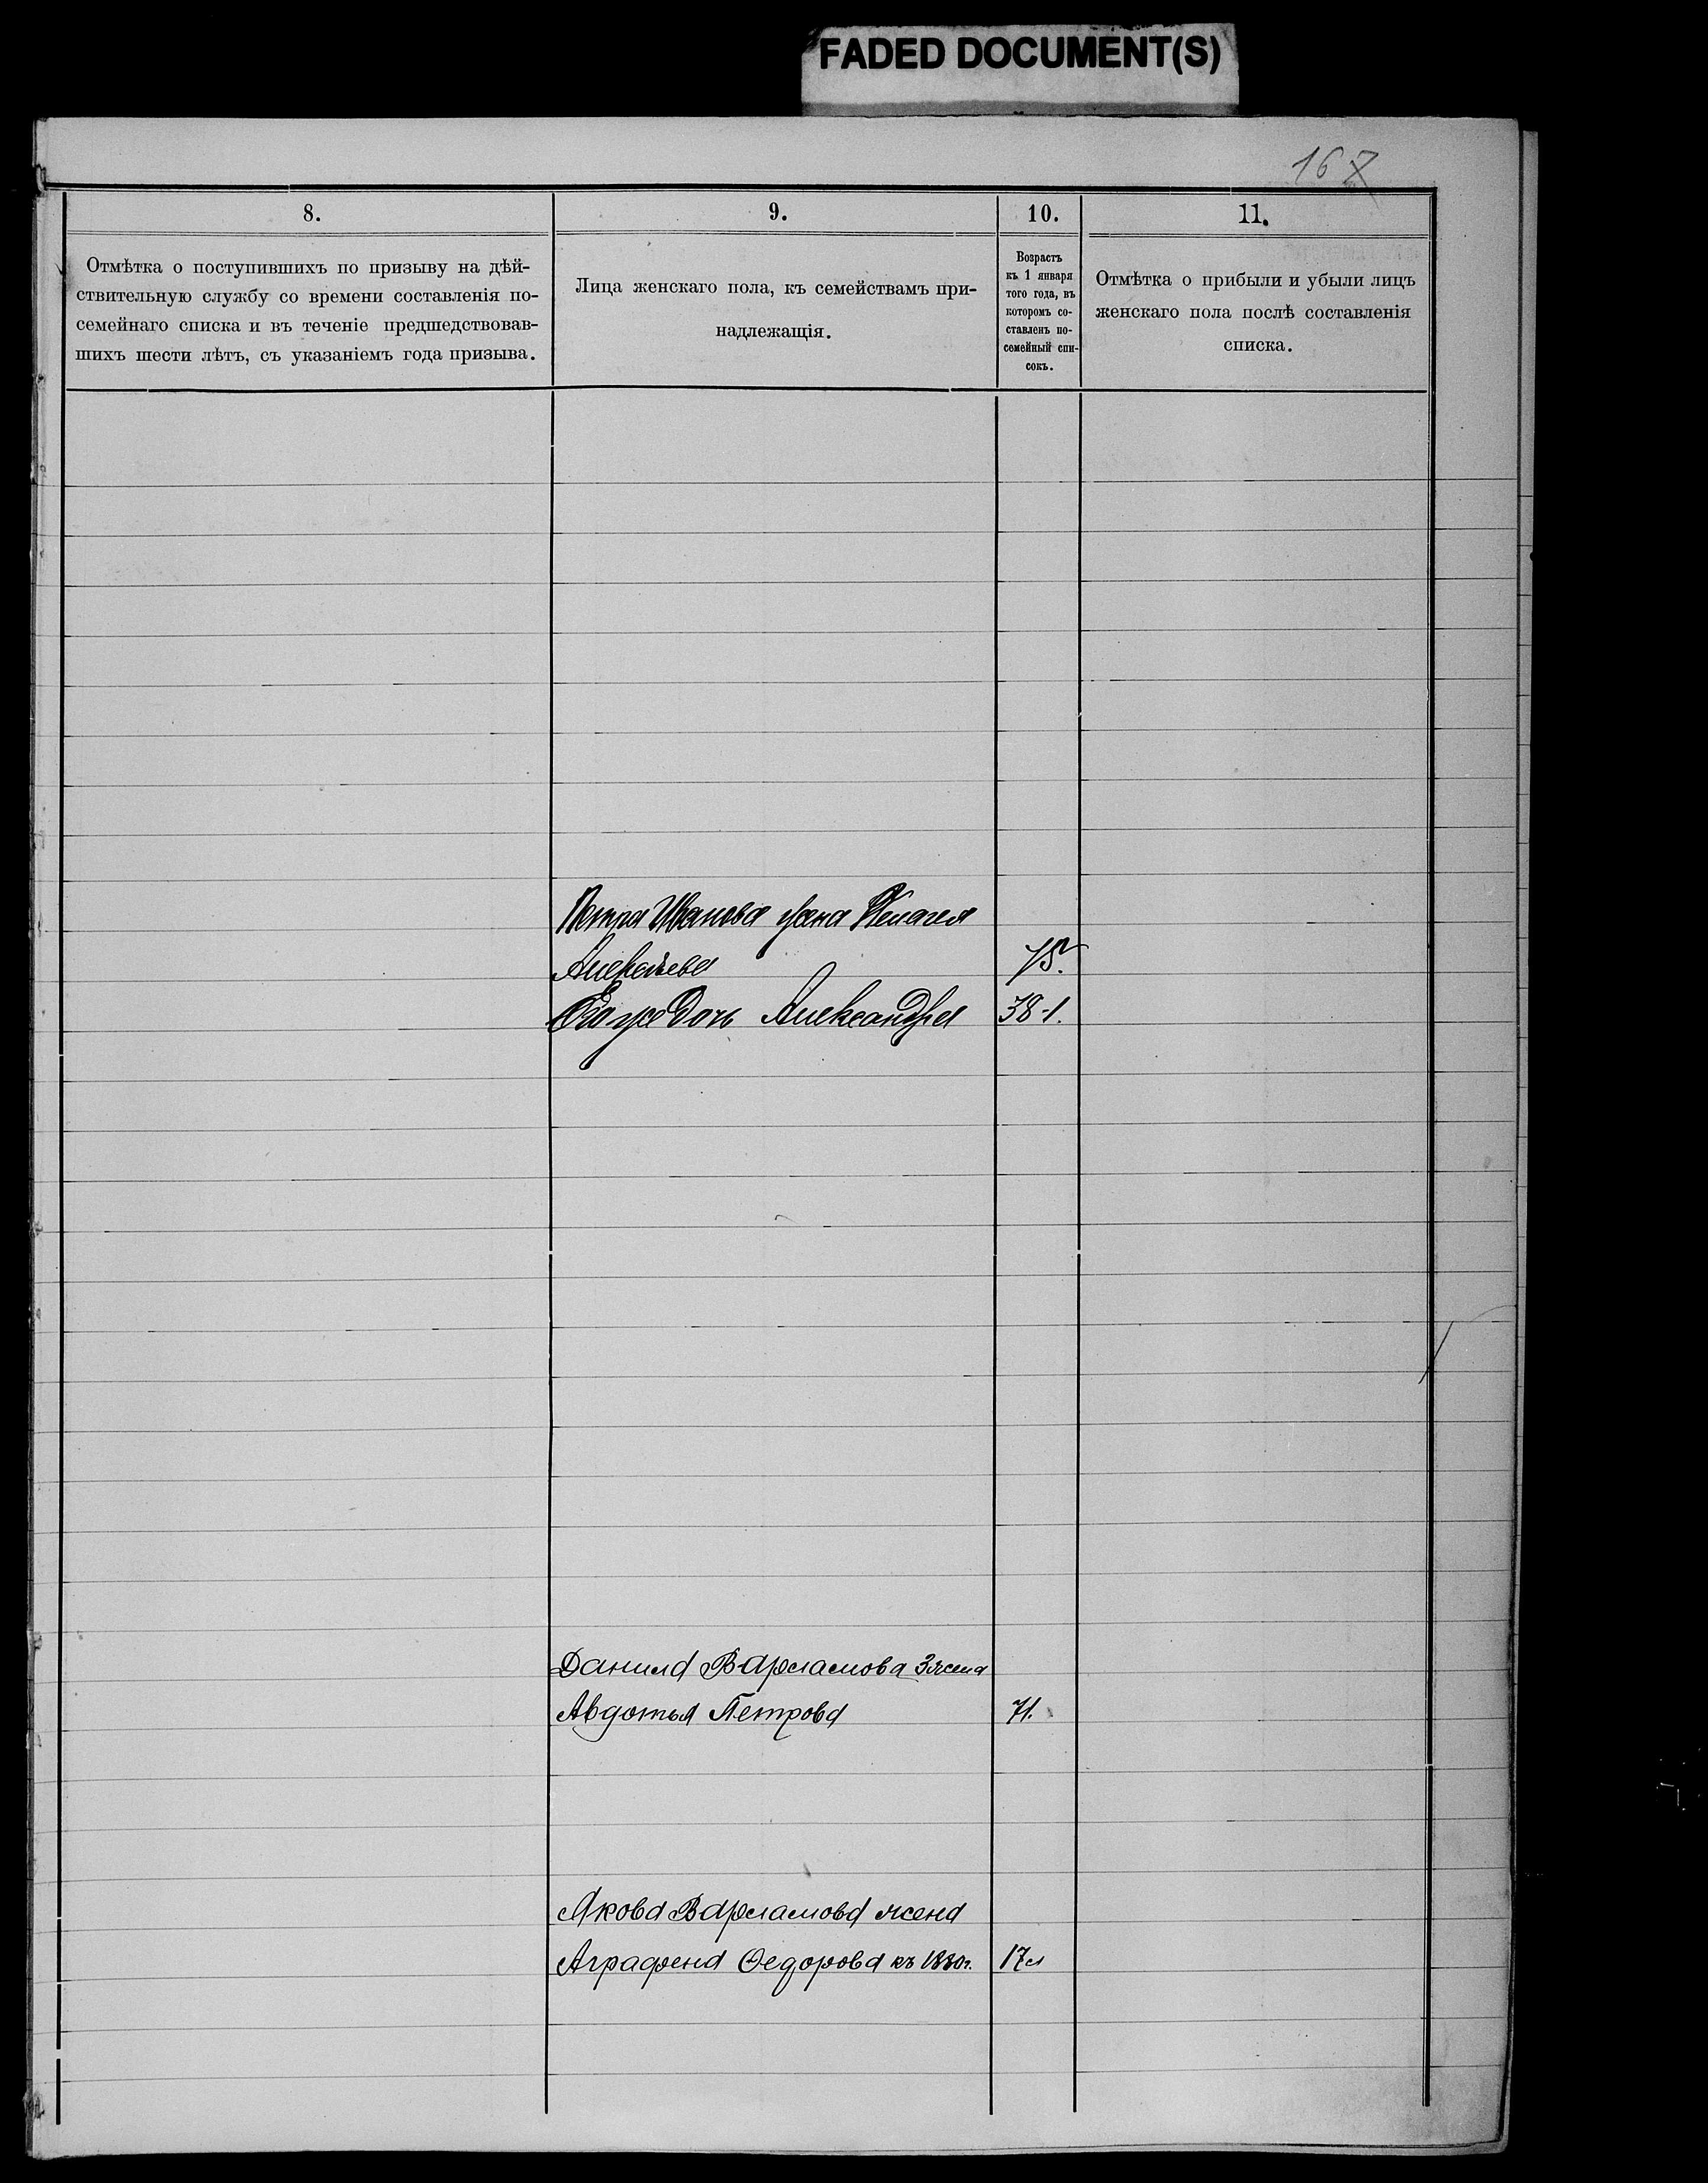 FADED DOCUMENT(S)
167
8.
9.
10.
11.
Отмѣтка о поступившихъ по призыву на дѣй-
ствительную службу со времени составленія по-
семейнаго списка и въ теченіе предшедствовав-
шихъ шести лѣтъ, съ указаніемъ года призыва.
Лица женскаго пола, къ семействамъ при-
надлежащія.
Возрастъ
къ 1 января
того года, въ
которомъ со-
ставленъ по-
семейный спи-
сокъ.
Отмѣтка о прибыли и убыли лицъ
женскаго пола послѣ составленія
списка.
Петра Иванова жена Пелагея
75.
Его же дочь Александра 38
Данила Варламова 3 жена
Авдотья Петрова 71.
Якова Варламова жена
Аграфена Ѳедорова къ 1880 г. 17 л